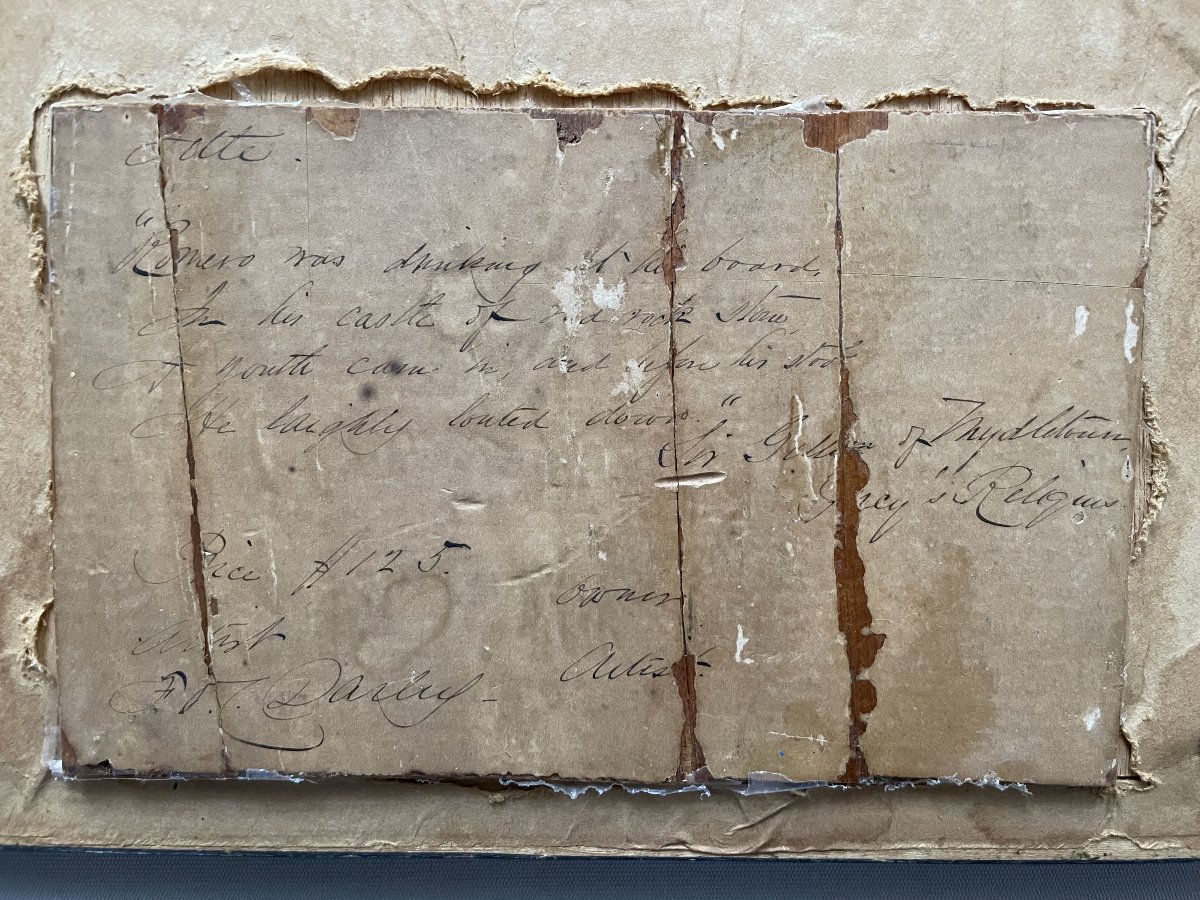 Title.
"Romero was drinking at his board,
In his castle of red rock stone,
A youth came in, and upon his stool
He laighly louted down."
Sir of
Percy's Reliques.
Price $125.
Owner
Artist
Artist.
F.O.C. Darley –